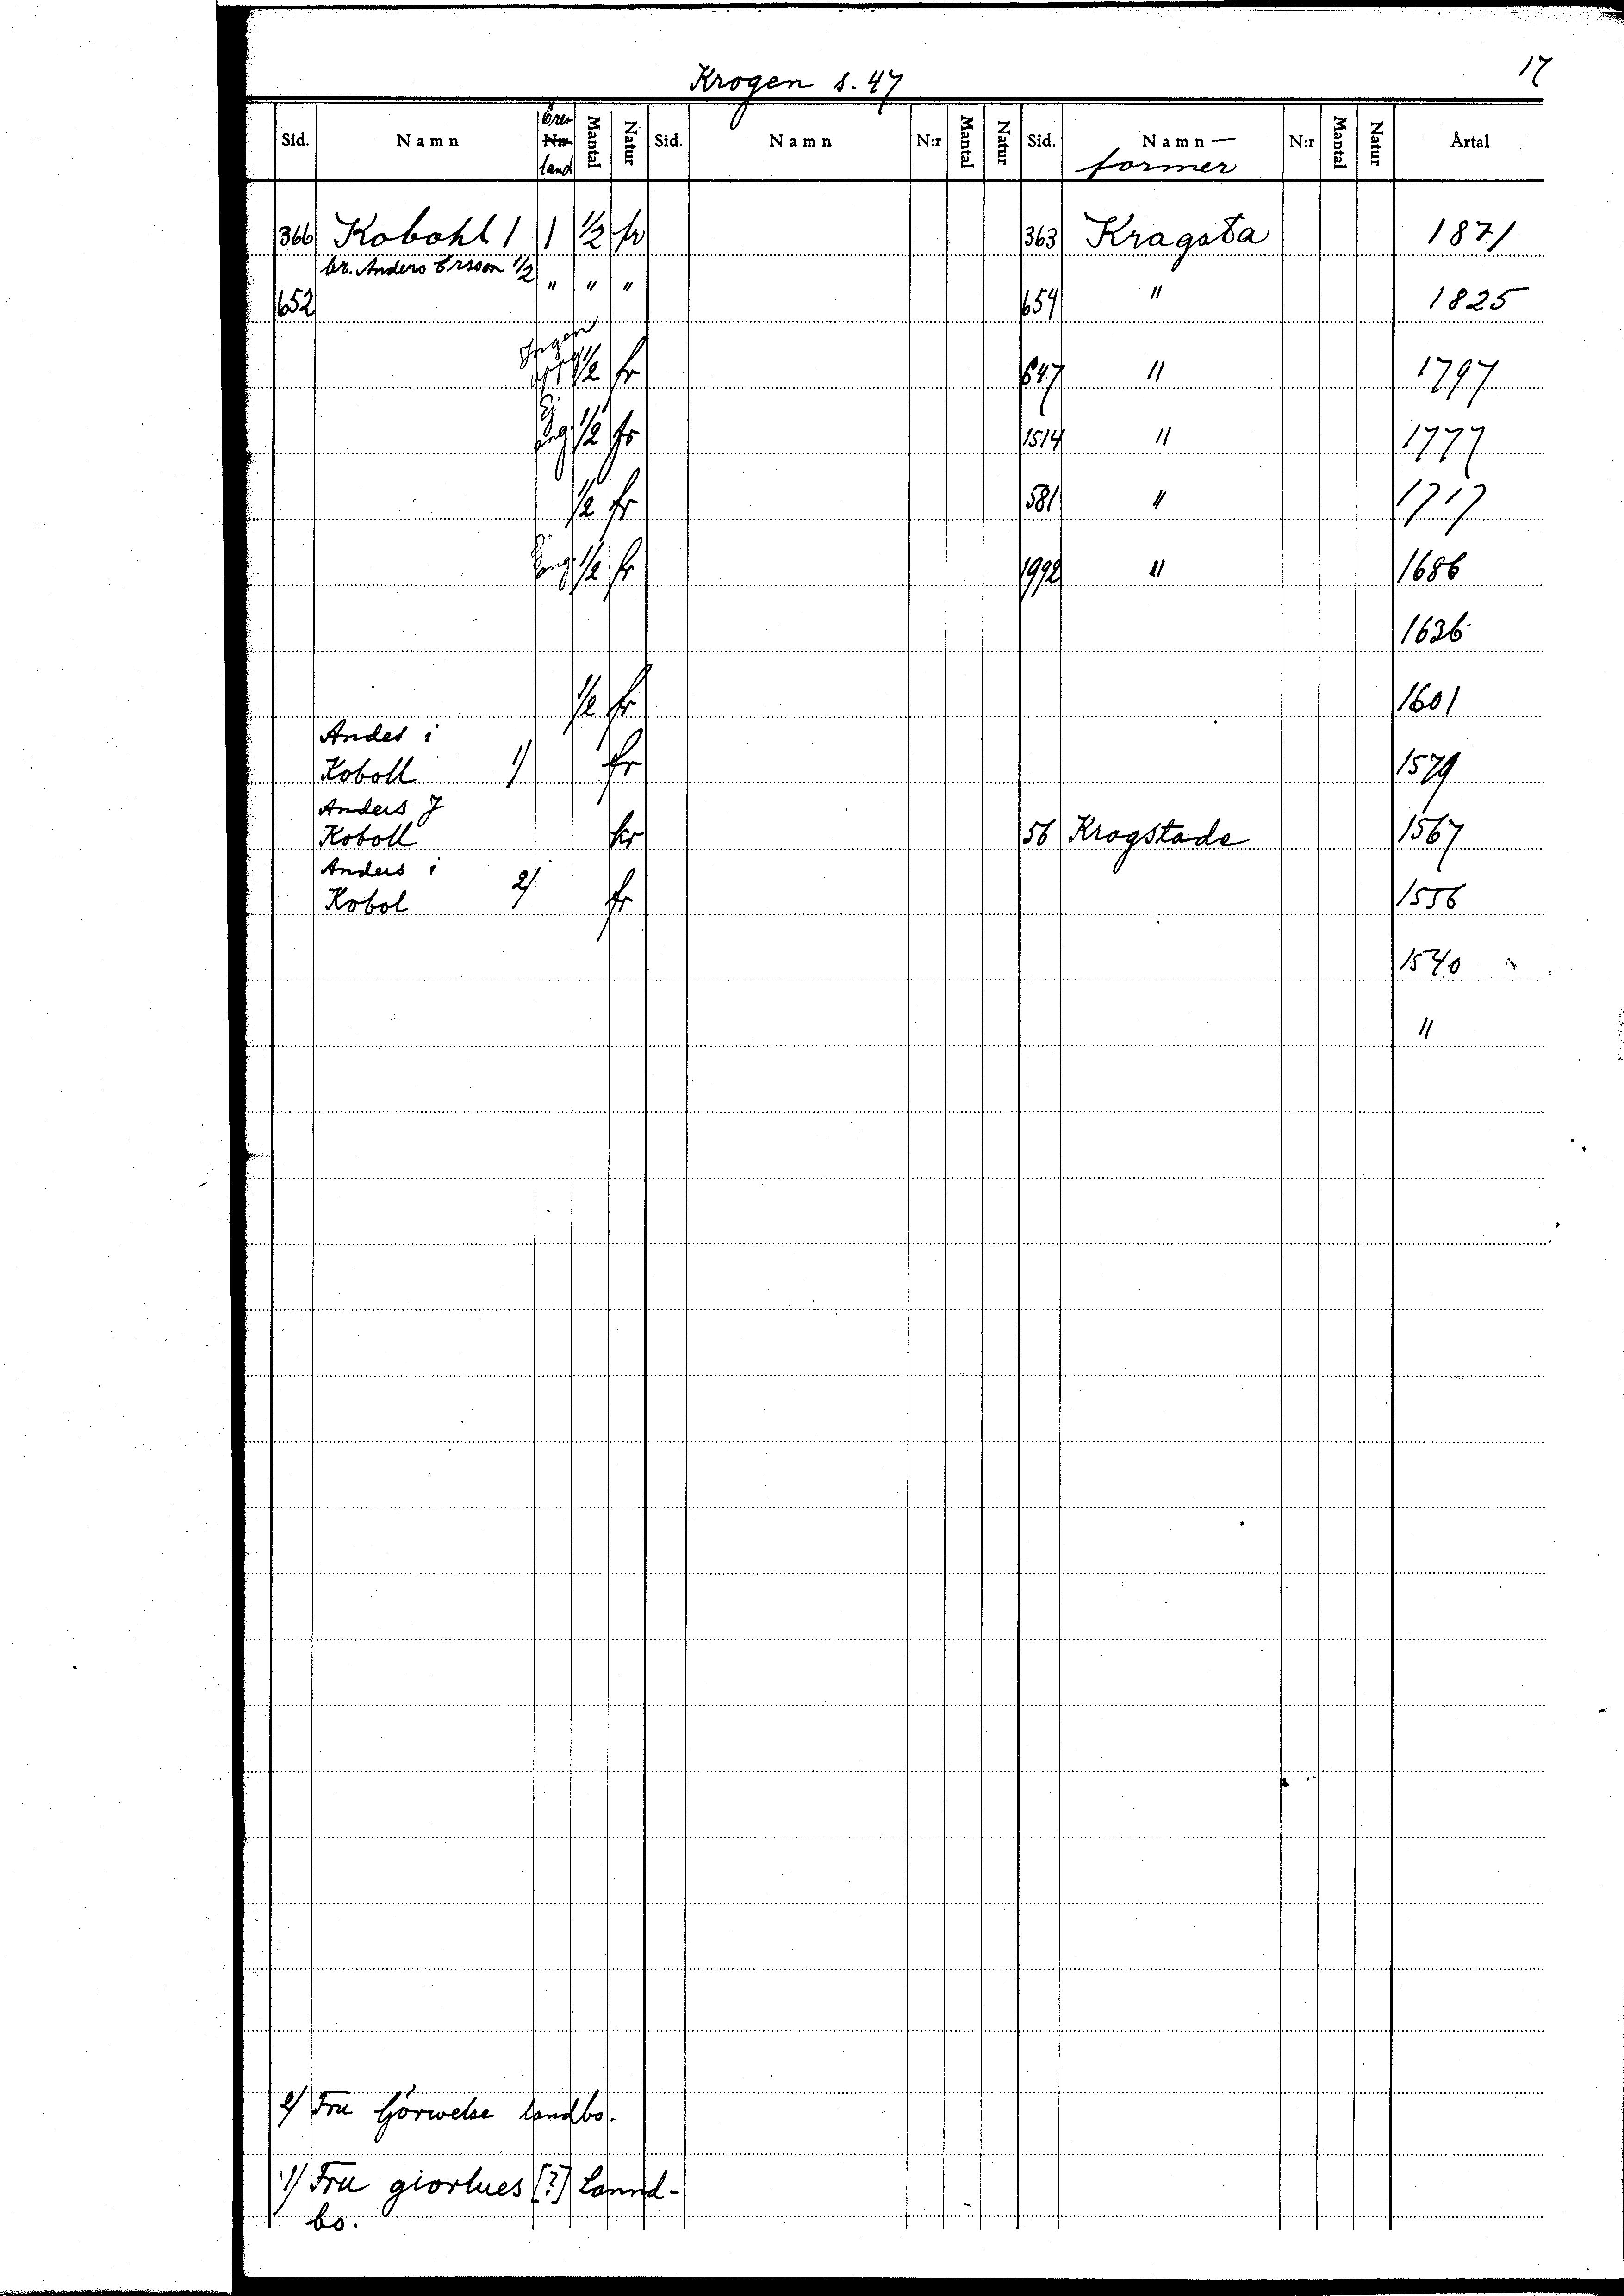 17
Krogen s. 47
Sid. Namn Öres N:r land Mantal Natur Sid. Namn N:r Mantal Natur Sid. Namn— N:r Mantal Natur Årtal
former
366 Kobohl 1 1 1/2 fr 363 Kragsta 1871
br. Anders Ersson 1/2
652 " " " 654 " 1825
1/2 fr 647 " 1797
1/2 fr 1514 " 1777
1/2 fr 581 " 1717
1/2 fr 1992 " 1686
1636
1/2 fr 1601
Andes i
Koboll 1) fr 1579
Anders J
Koboll kr 56 Krogstade 1567
Anders i
Kobol 2) fr 1556
1540
"
2) Fru Görwelse landbo.
1) Fru giorlues [?] Lannd-
bo.